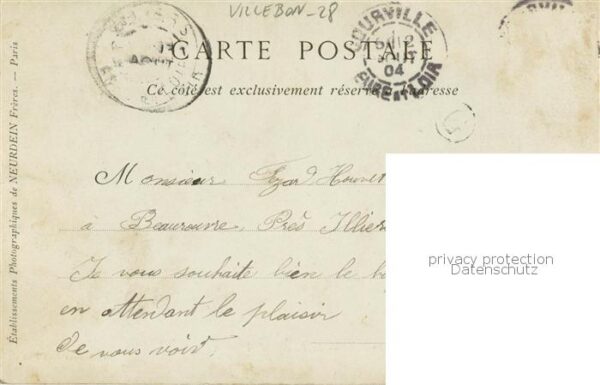 VILLEBON_28
CARTE POSTALE
COURVILLE
04
EURE-ET-LOIR
Ce côté est exclusivement réservé à l'adresse
Établissements Photographiques de NEURDEIN Frères. — Paris
Monsieur
à Beaurouvre, Près Illier
Je vous souhaite bien le
en attendant le plaisir
de vous voir,
privacy protection
Datenschutz